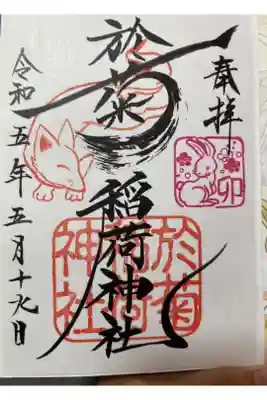 奉拝
卯
於菊稲荷神社
於菊
神社
令和五年五月十九日